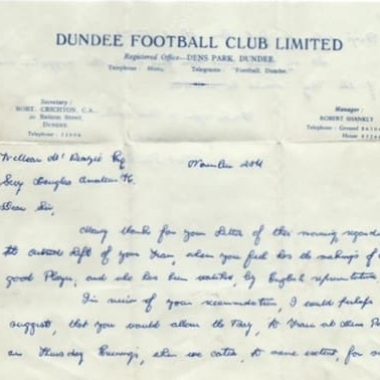 DUNDEE FOOTBALL CLUB LIMITED
Registered Office—DENS PARK, DUNDEE.
Telegrams "Football, Dundee."
Secretary:
ROBT. CRICHTON, C.A.
Dundee
Manager:
ROBERT SHANKLY
William Mc Esq
November 20th
Secy Douglas Amateur
Dear Sir,
Many thanks for your letter of this morning
the outside left of your team, whom you feel has the makings of
good Player, and who has been watched, by English
In view of your I could perhaps
suggest, that you would allow the Boy, to Train at Dens
on Thursday Evenings, when we cater, to some extent, for